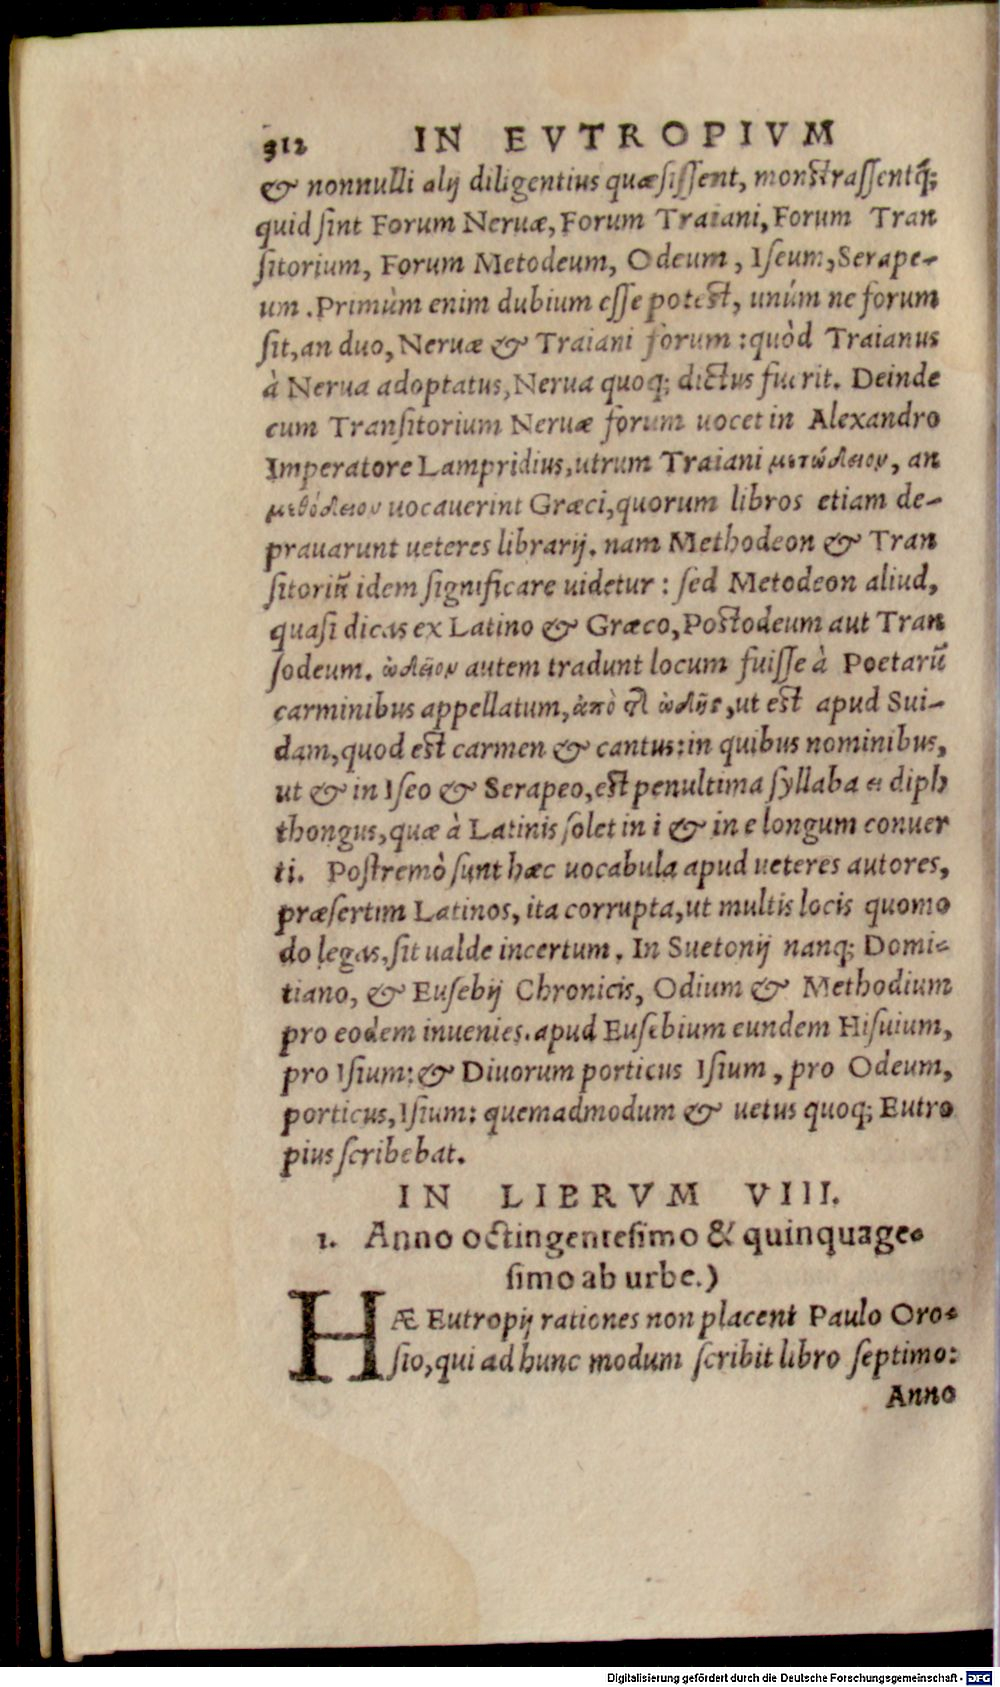 312 IN EVTROPIVM
& nonnulli alij diligentius quæsissent, monstrassentq́;
quid sint Forum Neruæ, Forum Traiani, Forum Tran
sitorium, Forum Metodeum, Odeum, Iseum, Serape-
um. Primùm enim dubium esse potest, unúm ne forum
sit, an duo, Neruæ & Traiani forum: quòd Traianus
à Nerua adoptatus, Nerua quoq; dictus fuerit. Deinde
cum Transitorium Neruæ forum uocet in Alexandro
Imperatore Lampridius, utrum Traiani μετώδειον, an
μεθόδειον uocauerint Græci, quorum libros etiam de-
prauarunt ueteres librarij. nam Methodeon & Tran
sitoriũ idem significare uidetur: sed Metodeon aliud,
quasi dicas ex Latino & Græco, Postodeum aut Tran
sodeum. ὠδεῖον autem tradunt locum fuisse à Poetarũ
carminibus appellatum, ἀπὸ τῆ ὠδῆς, ut est apud Sui-
dam, quod est carmen & cantus: in quibus nominibus,
ut & in Iseo & Serapeo, est penultima syllaba ει diph
thongus, quæ à Latinis solet in i & in e longum conuer
ti. Postremò sunt hæc uocabula apud ueteres autores,
præsertim Latinos, ita corrupta, ut multis locis quomo
do legas, sit ualde incertum. In Suetonij nanq; Domi-
tiano, & Eusebij Chronicis, Odium & Methodium
pro eodem inuenies. apud Eusebium eundem Hisuium,
pro Isium: & Diuorum porticus Isium, pro Odeum,
porticus, Isium: quemadmodum & uetus quoq; Eutro
pius scribebat.
IN LIBRVM VIII.
1. Anno octingentesimo & quinquage-
simo ab urbe.)
HÆ Eutropij rationes non placent Paulo Oro-
sio, qui ad hunc modum scribit libro septimo:
Anno
Digitalisierung gefördert durch die Deutsche Forschungsgemeinschaft - DFG